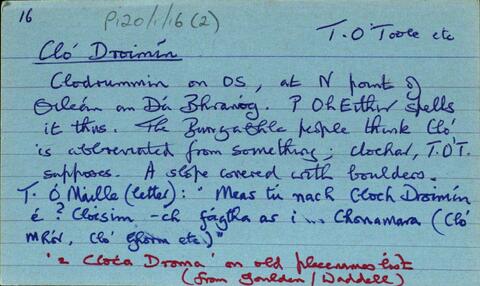 16
P120/1/16(2)
T. O'Toole etc
Cló Droimín
Clodrummin on OS, at N point of
Oileán an Dá Bhranóg. P Ó hEithir spells
it thus. The people think Cló
is abbreviated from something; clochar, T.O'T.
supposes. A slope covered with boulders.
T. Ó Máille (letter): "Meas tú nach Cloch Droimín
é? Cloisim -ch fágtha as i ... Chonamara (Cló
mhór, Cló ghorm etc)"
'2 Cloća Droma' on old placenames list
(from Goulden / Waddell)